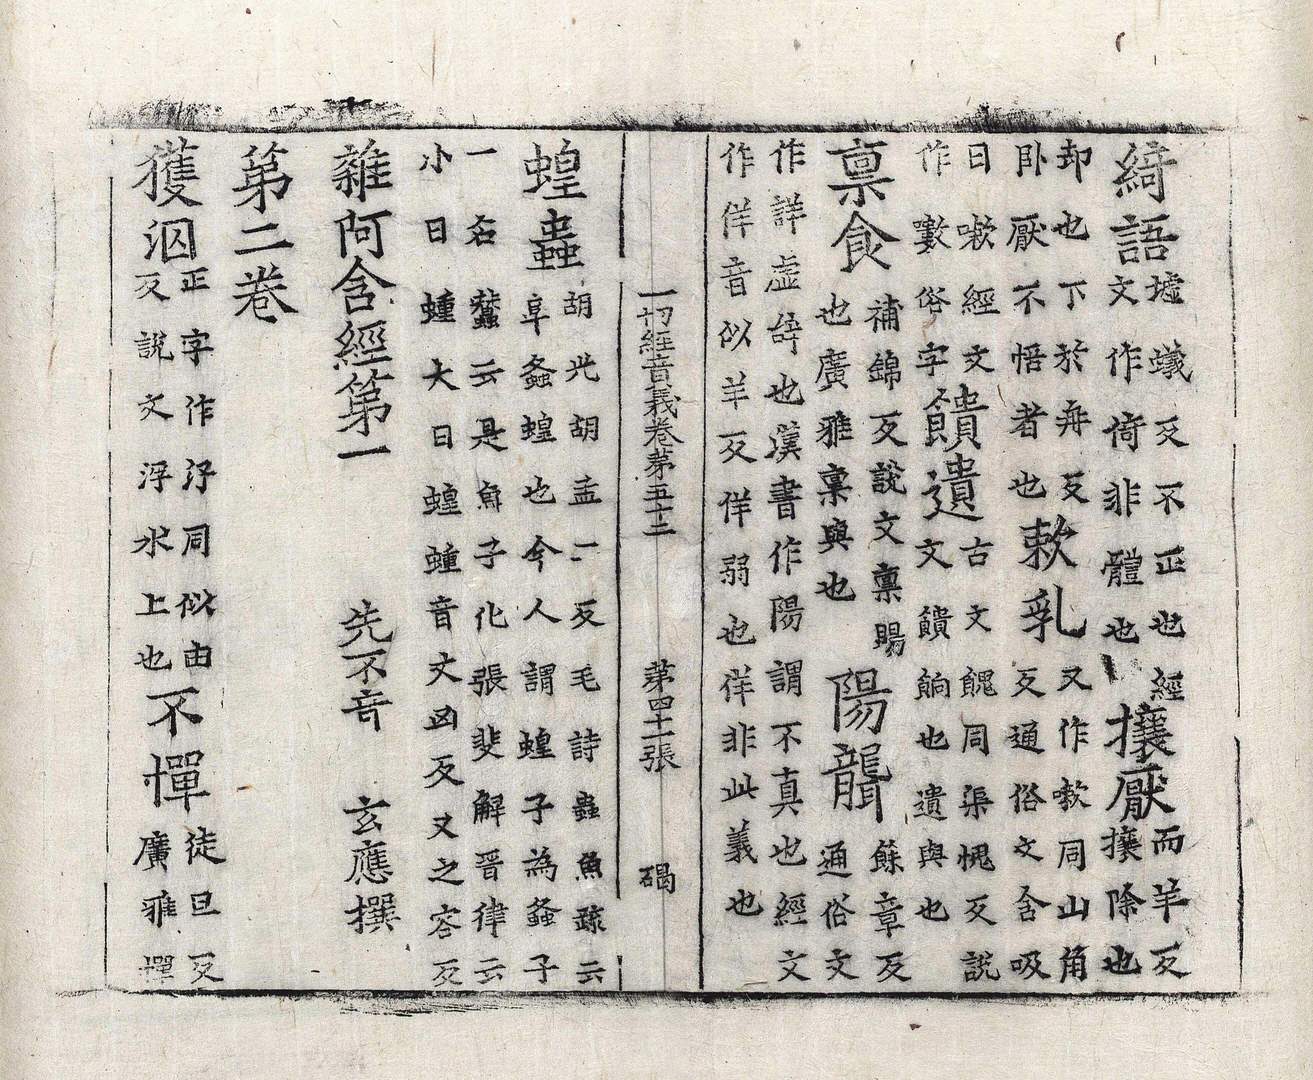 綺語墟蟻反不正也經文作倚非體也攘厭而羊反攘除也
却也下於冉反卧厭不悟者也欶乳又作嗽同山角反通俗文含吸
曰嗽經文作𡂡俗字饋遺古文餽同渠愧反說文饋餉也遺與也
稟食補錦反說文稟賜也廣雅稟與也陽聾餘章反通俗文
作詳虛辞也漢書作陽謂不真也經文作佯音似羊反佯弱也佯非此義也
一切經音義卷第五十二 第四十一張 碣
蝗蟲胡光胡孟二反毛詩蟲魚疏云阜螽蝗也今人謂蝗子為螽子
一名蠜云是魚子化張斐解晉律云小曰蝩大曰蝗蝩音丈凶反又之容反
雜阿含經第一 先不音 玄應撰
第二卷
獲泅正字作汓同似由反說文浮水上也不憚徒旦反廣雅憚